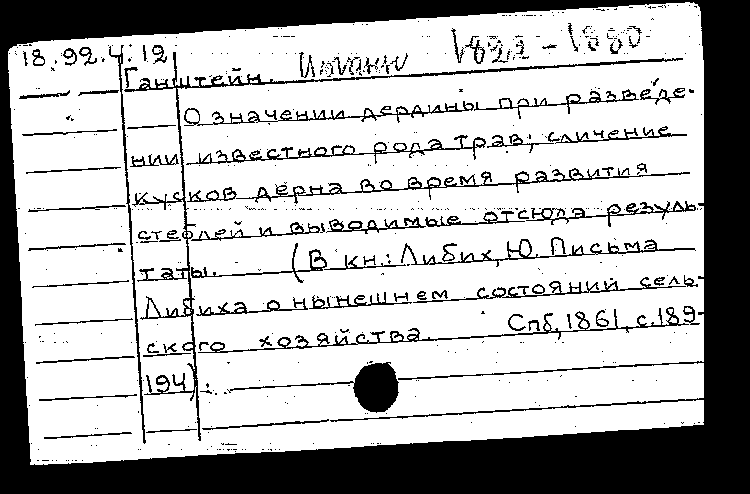 18.92.4.12
Ганштейн. Иоганн 1822-1880
О значении дердины при разведе-
нии известного рода трав; сличение
кусков дерна во время развития
стеблей и выводимые отсюда резуль-
таты. (В кн.: Либих, Ю. Письма
Либиха о нынешнем состояний сель-
ского хозяйства. Спб, 1861, с.189-
194).